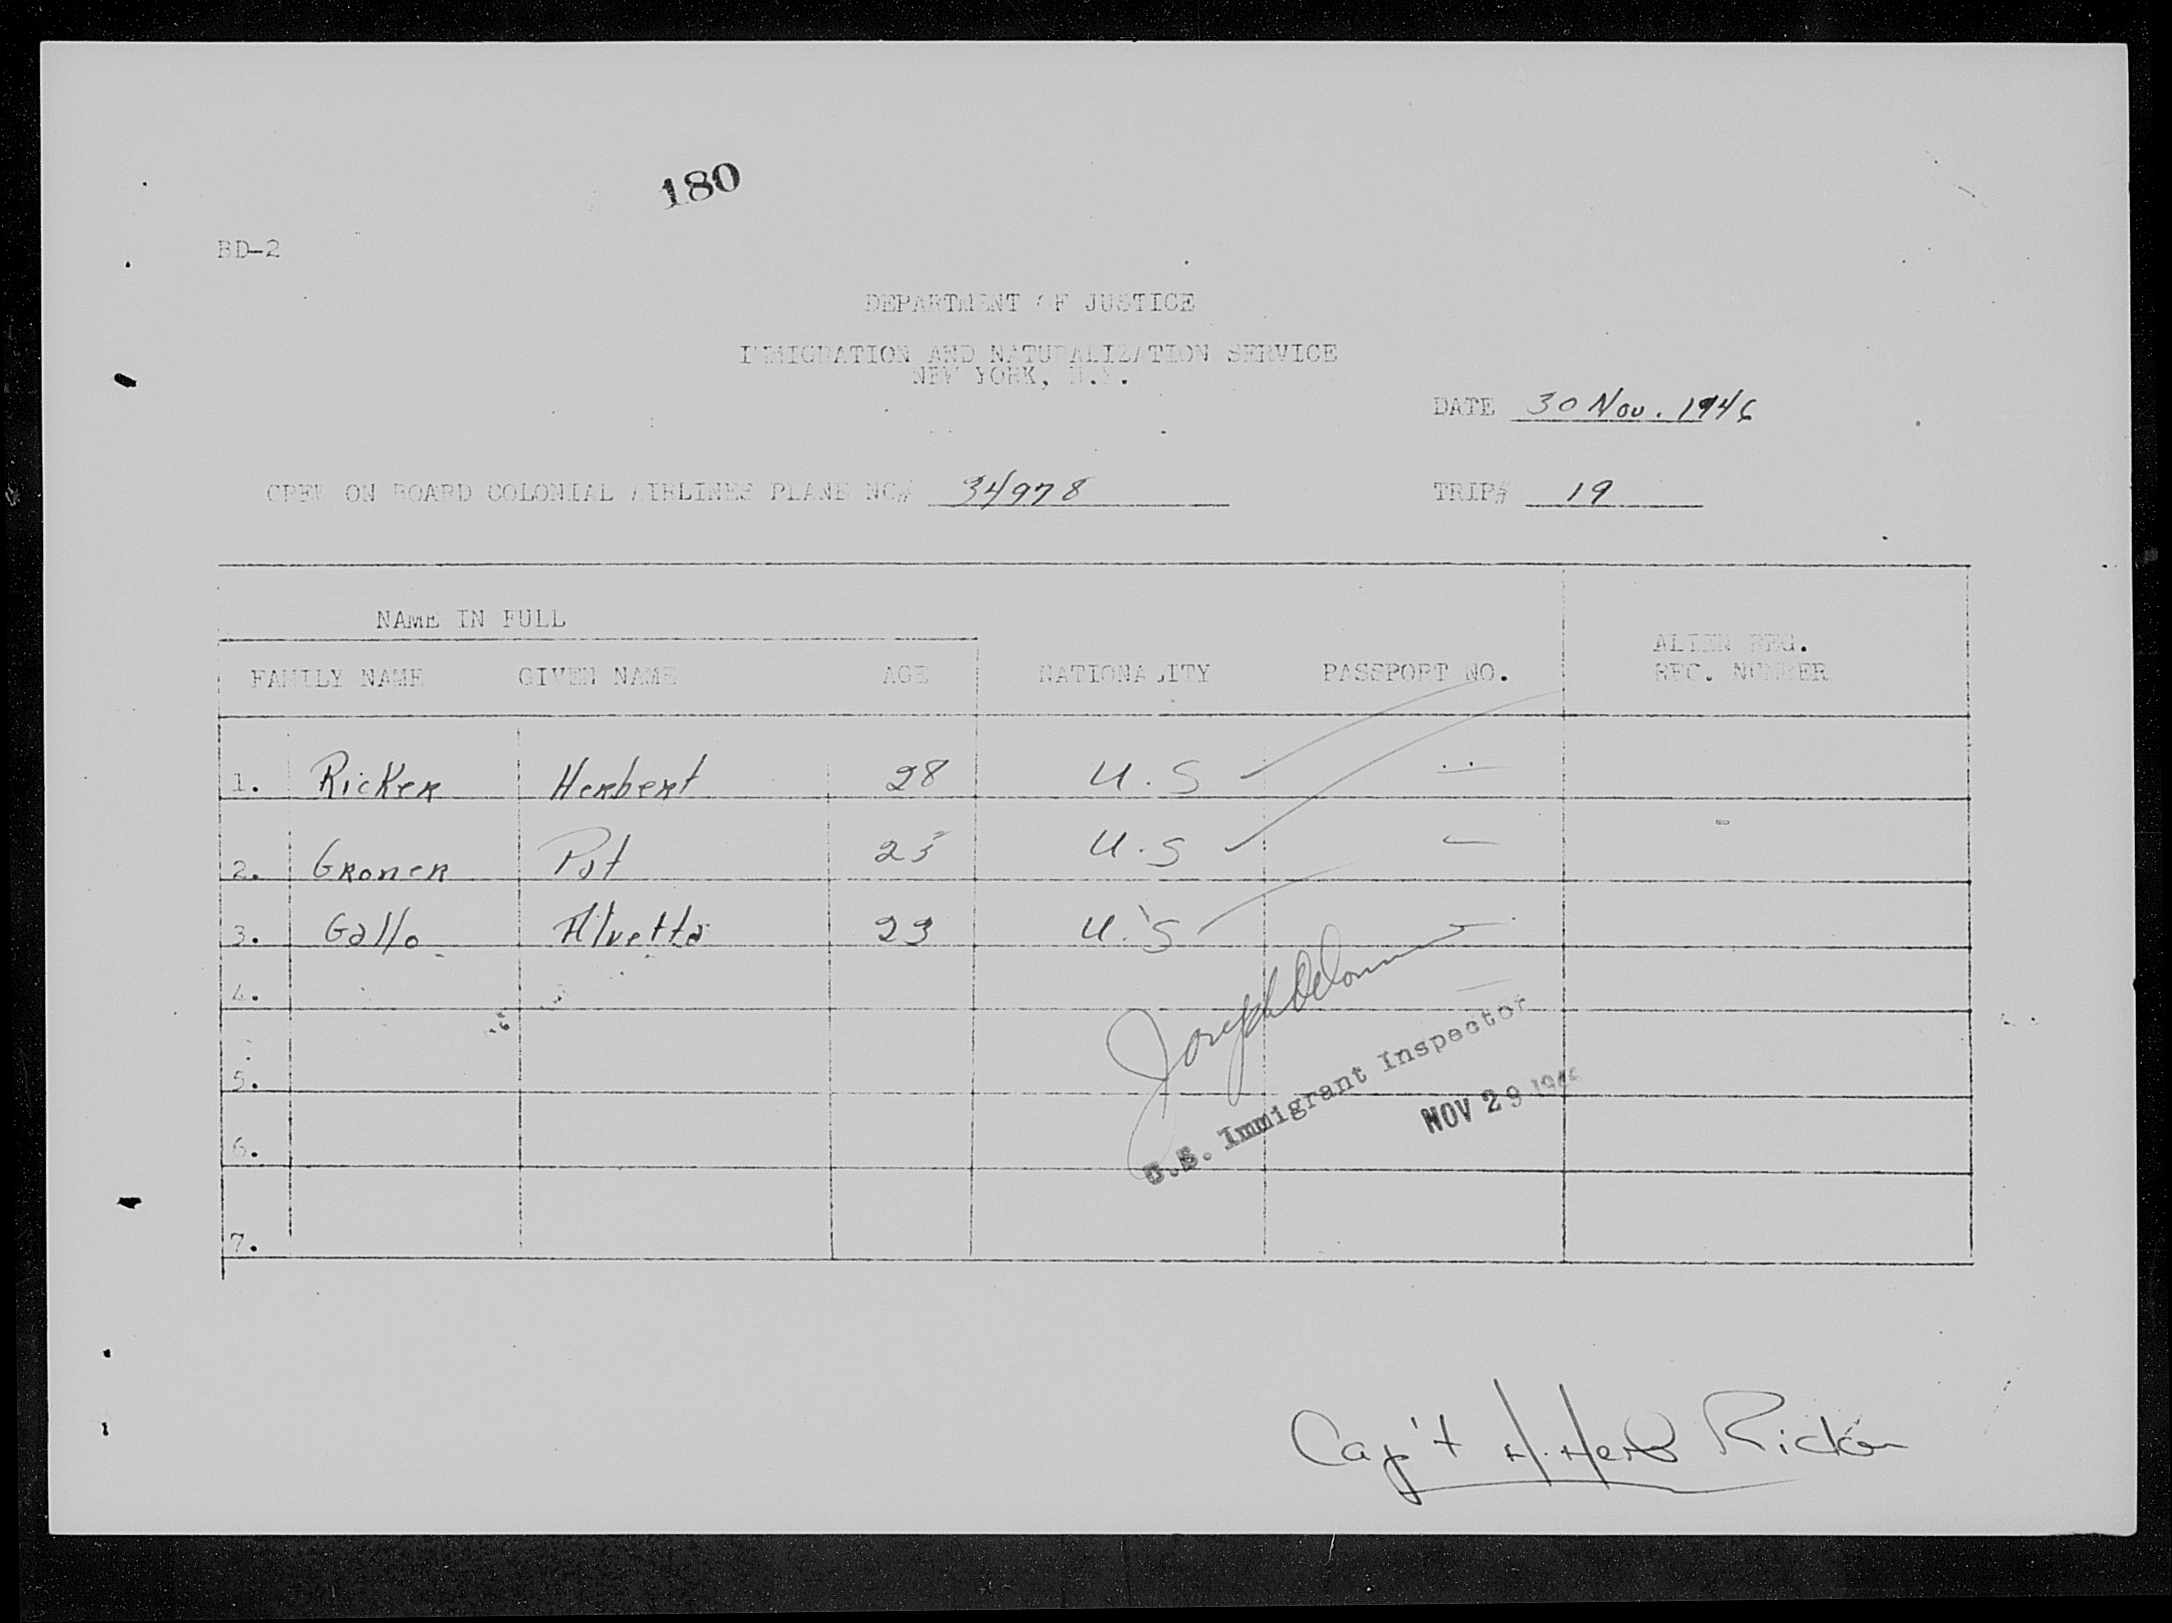 180
BD-2
DEPARTMENT OF JUSTICE
IMMIGRATION AND NATURALIZATION SERVICE
NEW YORK, N.Y.
DATE 30 Nov. 1946
CREW ON BOARD COLONIAL AIRLINES PLANE NC# 34978 TRIP# 19
NAME IN FULL
FAMILY NAME GIVEN NAME AGE NATIONALITY PASSPORT NO. ALIEN REG. REC. NUMBER
1. Ricker Herbert 28 U.S —
2. Groner Pat 25 U.S —
3. Gallo Alvetta 23 U.S —
4.
5.
6.
7.
Joseph
U.S. Immigrant Inspector
NOV 29 1946
Cap't H. Herb Ricker